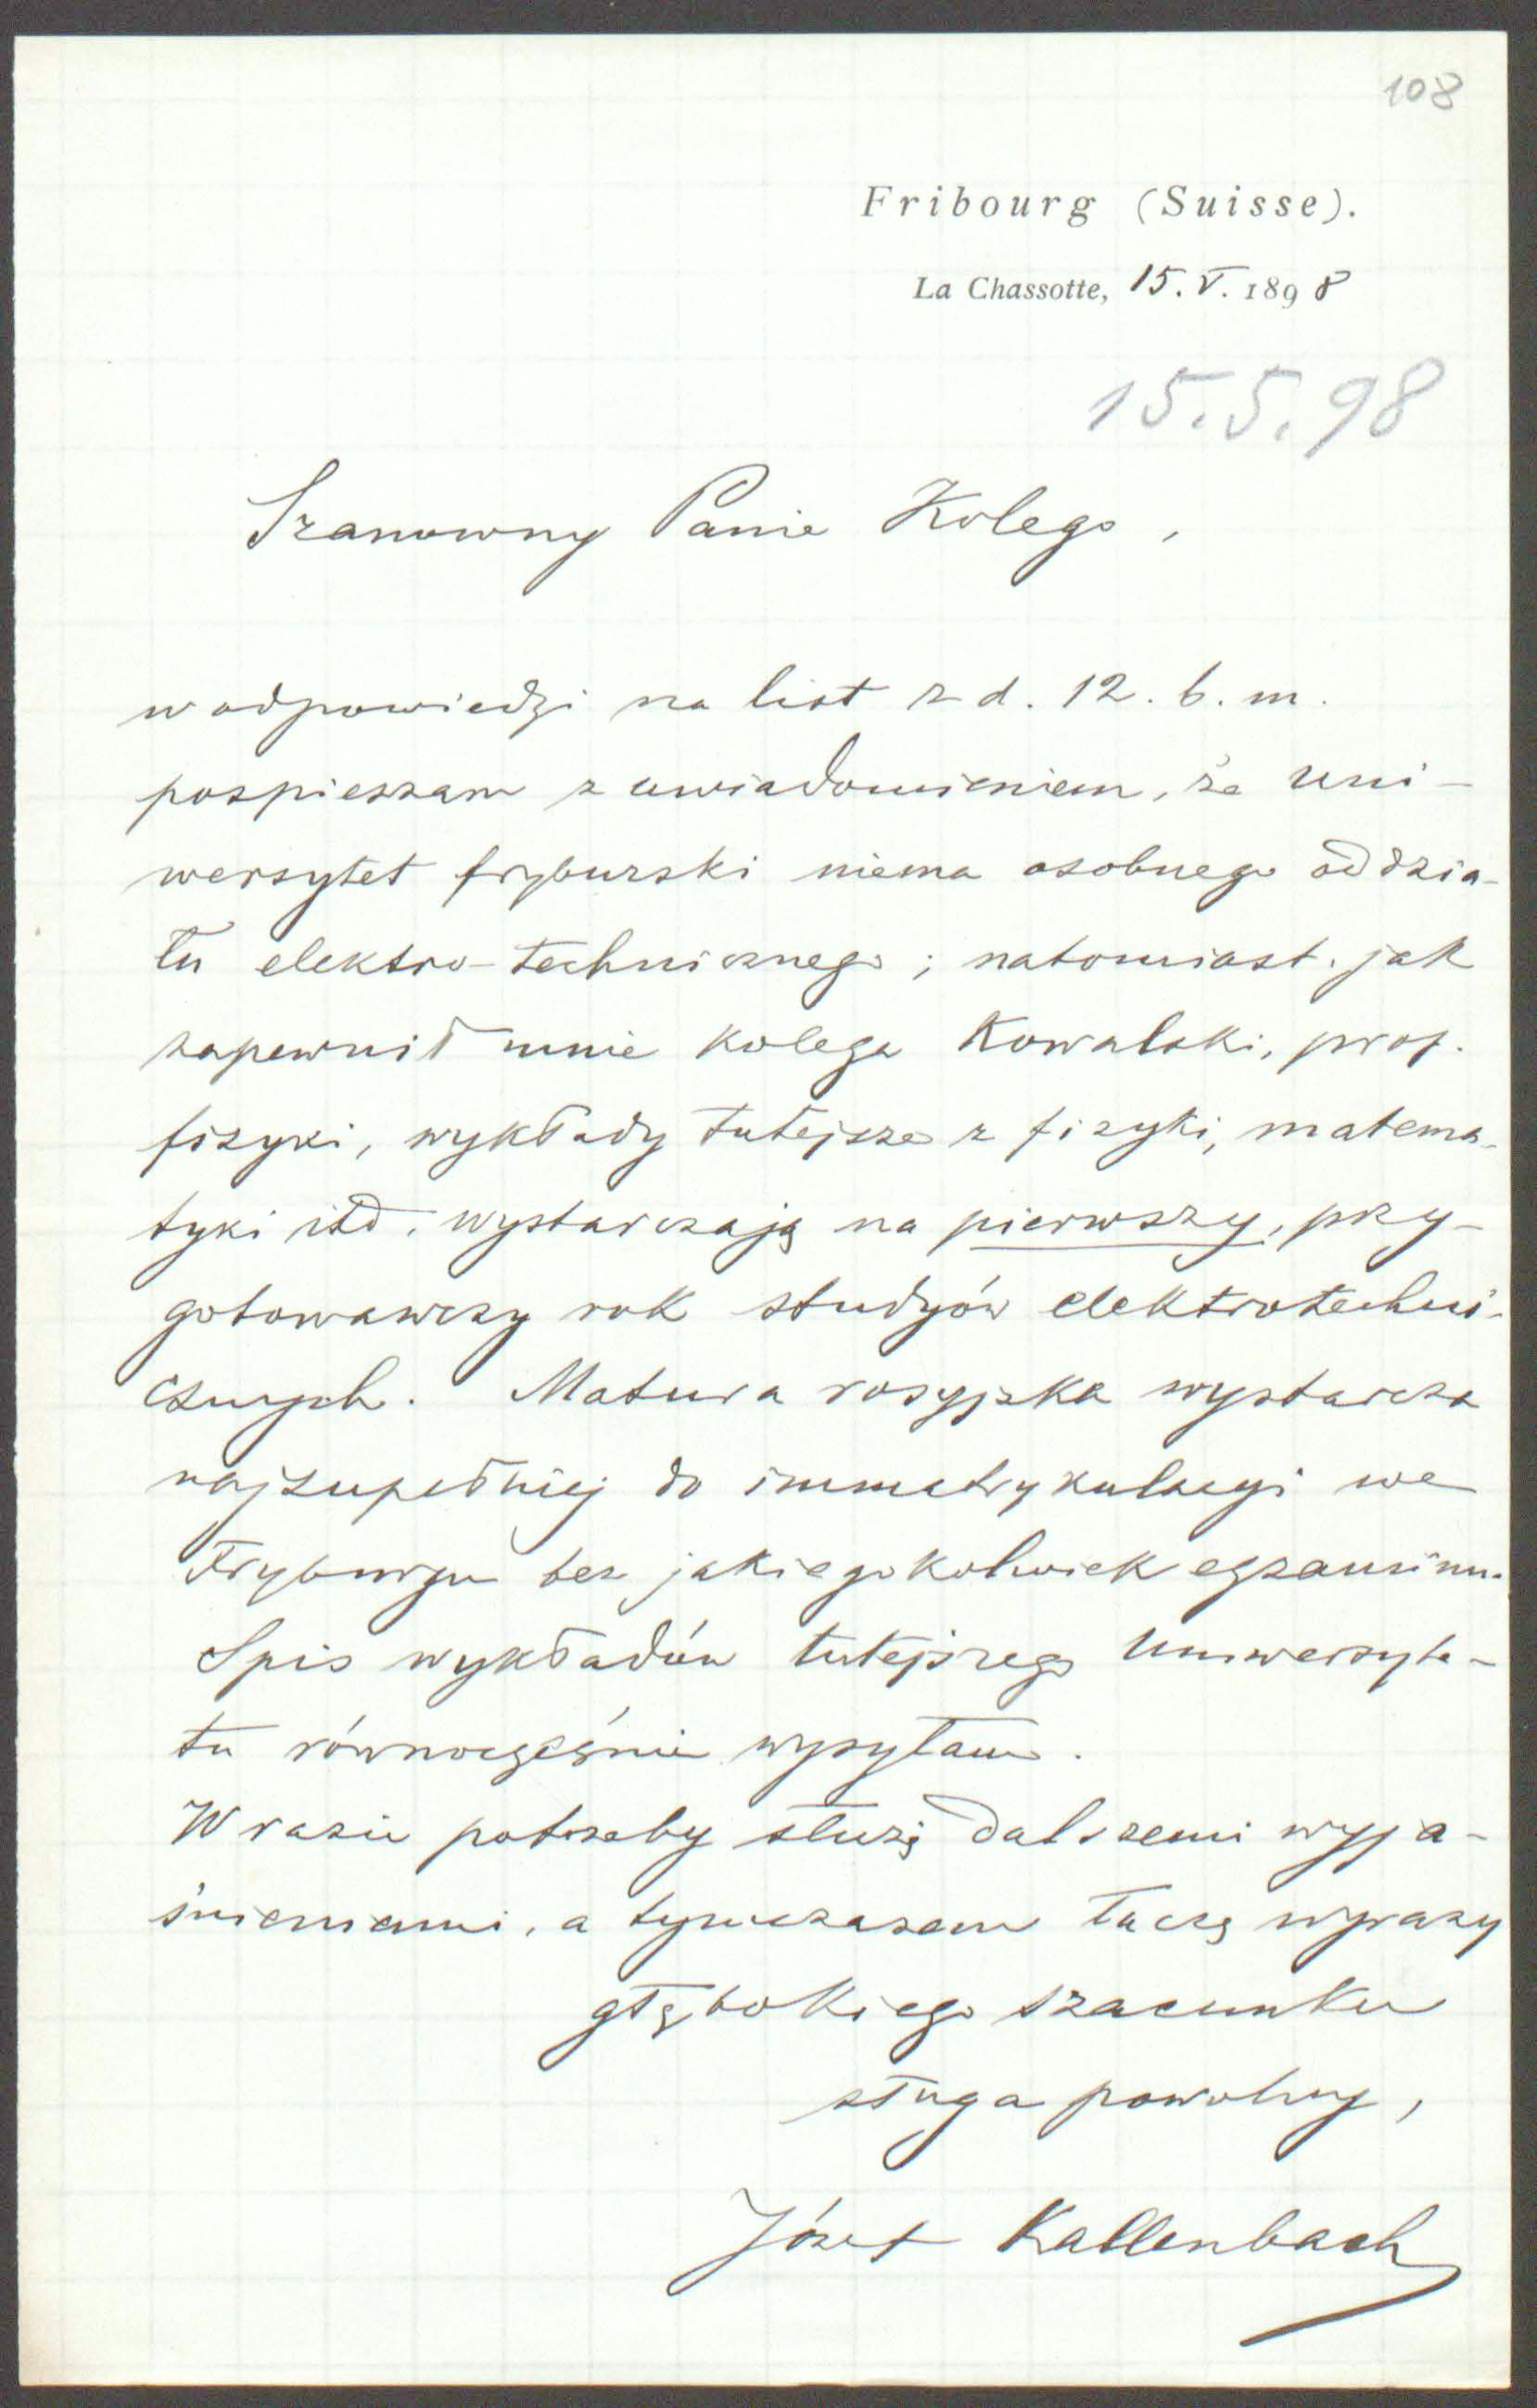 108
Fribourg (Suisse).
La Chassotte, 15. V. 1898
15.5.98
Szanowny Panie Kolego,
w odpowiedzi na list z d. 12. b. m.
pospieszam z uwiadomieniem, że Uni-
wersytet fryburski niema osobnego oddzia-
łu elektro-technicznego; natomiast, jak
zapewnił mnie kolega Kowalski, prof.
fizyki, wykłady tutejsze z fizyki, matema-
tyki itd. wystarczają na pierwszy, przy-
gotowawczy rok studyów elektrotechni-
cznych. Matura rosyjska wystarcza
najzupełniej do immatrykulacyi we
Fryburgu bez jakiegokolwiek egzaminu.
Spis wykładów tutejszego Uniwersyte-
tu równocześnie wysyłam.
W razie potrzeby służę dalszemi wyja-
śnieniami, a tymczasem łączę wyrazy
głębokiego szacunku
sługa powolny,
Józef Kallenbach